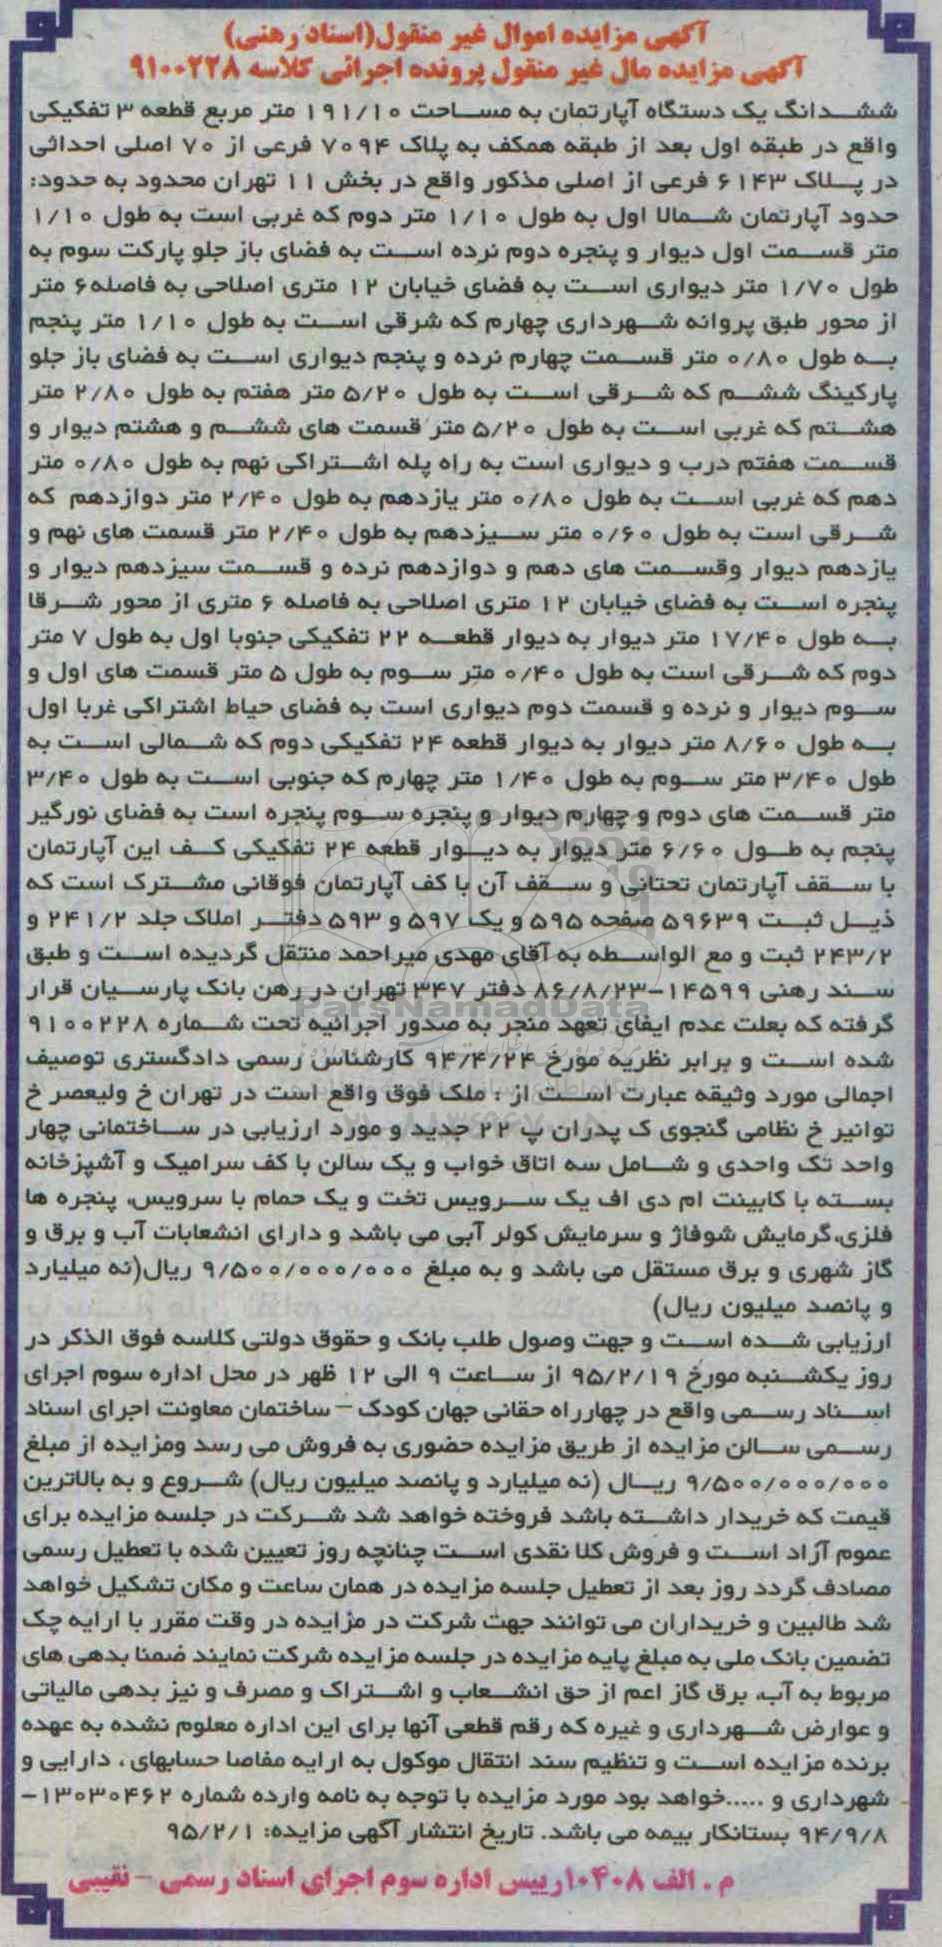 آگهی مزایده اموال غیر منقول(اسناد رهنی)
آگهی مزایده مال غیر منقول پرونده اجرائی کلاسه ۹۱۰۰۲۲۸
ششدانگ یک دستگاه آپارتمان به مساحت ۱۹۱/۱۰ متر مربع قطعه ۳ تفکیکی
واقع در طبقه اول بعد از طبقه همکف به پلاک ۷۰۹۴ فرعی از ۷۰ اصلی احداثی
در پلاک ۶۱۴۳ فرعی از اصلی مذکور واقع در بخش ۱۱ تهران محدود به حدود:
حدود آپارتمان شمالا اول به طول ۱/۱۰ متر دوم که غربی است به طول ۱/۱۰
متر قسمت اول دیوار و پنجره دوم نرده است به فضای باز جلو پارکت سوم به
طول ۱/۷۰ متر دیواری است به فضای خیابان ۱۲ متری اصلاحی به فاصله۶ متر
از محور طبق پروانه شهرداری چهارم که شرقی است به طول ۱/۱۰ متر پنجم
به طول ۰/۸۰ متر قسمت چهارم نرده و پنجم دیواری است به فضای باز جلو
پارکینگ ششم که شرقی است به طول ۵/۲۰ متر هفتم به طول ۲/۸۰ متر
هشتم که غربی است به طول ۵/۲۰ متر قسمت های ششم و هشتم دیوار و
قسمت هفتم درب و دیواری است به راه پله اشتراکی نهم به طول ۰/۸۰ متر
دهم که غربی است به طول ۰/۸۰ متر یازدهم به طول ۲/۴۰ متر دوازدهم که
شرقی است به طول ۰/۶۰ متر سیزدهم به طول ۲/۴۰ متر قسمت های نهم و
یازدهم دیوار وقسمت های دهم و دوازدهم نرده و قسمت سیزدهم دیوار و
پنجره است به فضای خیابان ۱۲ متری اصلاحی به فاصله ۶ متری از محور شرقا
به طول ۱۷/۴۰ متر دیوار به دیوار قطعه ۲۲ تفکیکی جنوبا اول به طول ۷ متر
دوم که شرقی است به طول ۰/۴۰ متر سوم به طول ۵ متر قسمت های اول و
سوم دیوار و نرده و قسمت دوم دیواری است به فضای حیاط اشتراکی غربا اول
به طول ۸/۶۰ متر دیوار به دیوار قطعه ۲۴ تفکیکی دوم که شمالی است به
طول ۳/۴۰ متر سوم به طول ۱/۴۰ متر چهارم که جنوبی است به طول ۳/۴۰
متر قسمت های دوم و چهارم دیوار و پنجره سوم پنجره است به فضای نورگیر
پنجم به طول ۶/۶۰ متر دیوار به دیوار قطعه ۲۴ تفکیکی کف این آپارتمان
با سقف آپارتمان تحتانی و سقف آن با کف آپارتمان فوقانی مشترک است که
ذیل ثبت ۵۹۶۳۹ صفحه ۵۹۵ و یک ۵۹۷ و ۵۹۳ دفتر املاک جلد ۲۴۱/۲ و
۲۴۳/۲ ثبت و مع الواسطه به آقای مهدی میراحمد منتقل گردیده است و طبق
سند رهنی ۱۴۵۹۹-۸۶/۸/۲۳ دفتر ۳۴۷ تهران در رهن بانک پارسیان قرار
گرفته که بعلت عدم ایفای تعهد منجر به صدور اجرائیه تحت شماره ۹۱۰۰۲۲۸
شده است و برابر نظریه مورخ ۹۴/۴/۲۴ کارشناس رسمی دادگستری توصیف
اجمالی مورد وثیقه عبارت است از : ملک فوق واقع است در تهران خ ولیعصر خ
توانیر خ نظامی گنجوی ک پدران پ ۲۲ جدید و مورد ارزیابی در ساختمانی چهار
واحد تک واحدی و شامل سه اتاق خواب و یک سالن با کف سرامیک و آشپزخانه
بسته با کابینت ام دی اف یک سرویس تخت و یک حمام با سرویس، پنجره ها
فلزی،گرمایش شوفاژ و سرمایش کولر آبی می باشد و دارای انشعابات آب و برق و
گاز شهری و برق مستقل می باشد و به مبلغ ۹/۵۰۰/۰۰۰/۰۰۰ ریال(نه میلیارد
و پانصد میلیون ریال)
ارزیابی شده است و جهت وصول طلب بانک و حقوق دولتی کلاسه فوق الذکر در
روز یکشنبه مورخ ۹۵/۲/۱۹ از ساعت ۹ الی ۱۲ ظهر در محل اداره سوم اجرای
اسناد رسمی واقع در چهارراه حقانی جهان کودک – ساختمان معاونت اجرای اسناد
رسمی سالن مزایده از طریق مزایده حضوری به فروش می رسد ومزایده از مبلغ
۹/۵۰۰/۰۰۰/۰۰۰ ریال (نه میلیارد و پانصد میلیون ریال) شروع و به بالاترین
قیمت که خریدار داشته باشد فروخته خواهد شد شرکت در جلسه مزایده برای
عموم آزاد است و فروش کلا نقدی است چنانچه روز تعیین شده با تعطیل رسمی
مصادف گردد روز بعد از تعطیل جلسه مزایده در همان ساعت و مکان تشکیل خواهد
شد طالبین و خریداران می توانند جهت شرکت در مزایده در وقت مقرر با ارایه چک
تضمین بانک ملی به مبلغ پایه مزایده در جلسه مزایده شرکت نمایند ضمنا بدهی های
مربوط به آب، برق گاز اعم از حق انشعاب و اشتراک و مصرف و نیز بدهی مالیاتی
و عوارض شهرداری و غیره که رقم قطعی آنها برای این اداره معلوم نشده به عهده
برنده مزایده است و تنظیم سند انتقال موکول به ارایه مفاصا حسابهای ، دارایی و
شهرداری و .....خواهد بود مورد مزایده با توجه به نامه وارده شماره ۱۳۰۳۰۴۶۲-
۹۴/۹/۸ بستانکار بیمه می باشد. تاریخ انتشار آگهی مزایده: ۹۵/۲/۱
م . الف ۱۰۴۰۸رییس اداره سوم اجرای اسناد رسمی – نقیبی
ParsNamadData